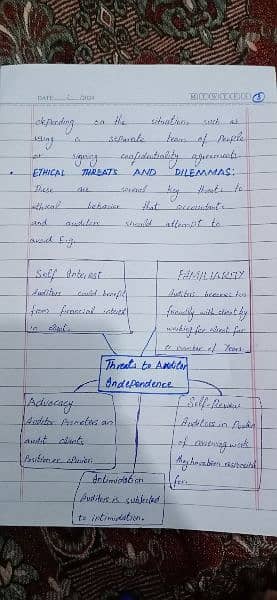 DATE: / /20
5
depending on the situation such as
using a separate team of people
or signing confidentiality agreements.
• ETHICAL THREATS AND DILEMMAS:
These are several key threats to
ethical behavior that accountants
and auditors should attempt to
avoid E.g.
Self Interest
Auditors could benefit
from financial interest
in client.
FAMILIARITY
Auditors becomes too
friendly with client by
working for client for
a number of Years.
Threats to Auditor
Independence
Advocacy
Auditor Promotes an
audit clients
Position or opinion
Self-Review
Auditors in Position
of reviewing work
they have been responsible
for.
Intimidation
Auditors is subjected
to intimidation.